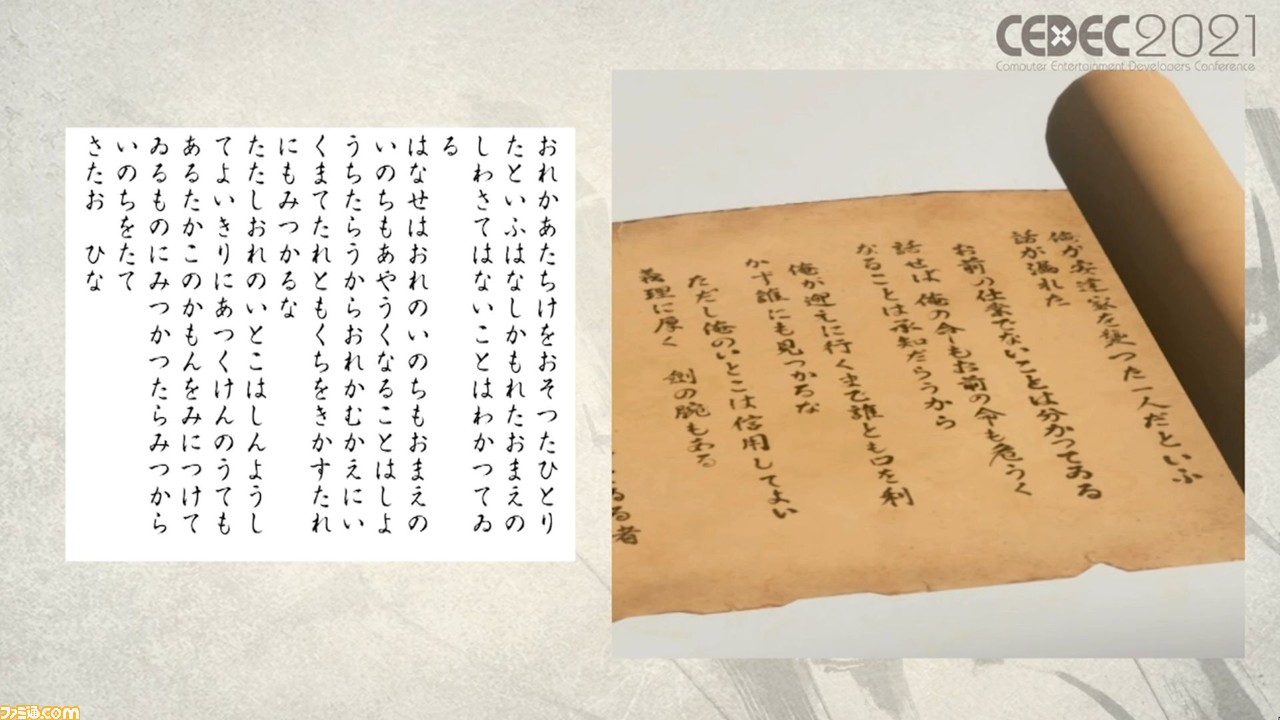 CEDEC2021
Computer Entertainment Developers Conference
おれかあたちけをおそつたひとり
たといふはなしかもれたおまえの
しわさてはないことはわかつてゐ
る
はなせはおれのいのちもおまえの
いのちもあやうくなることはしよ
うちたらうからおれかむかえにい
くまてたれともくちをきかすたれ
にもみつかるな
たたしおれのいとこはしんようし
てよいきりにあつくけんのうても
あるたかこのかもんをみにつけて
ゐるものにみつかつたらみつから
いのちをたて
さたお　ひな
俺が安達家を襲つた一人だといふ
話が漏れた
お前の仕業でないことは分かつてゐる
話せば 俺の命もお前の命も危うく
なることは承知だらうから
俺が迎えに行くまで誰とも口を利
かず誰にも見つかるな
ただし俺のいとこは信用してよい
義理に厚く 剣の腕もある
る者
ファミ通.com